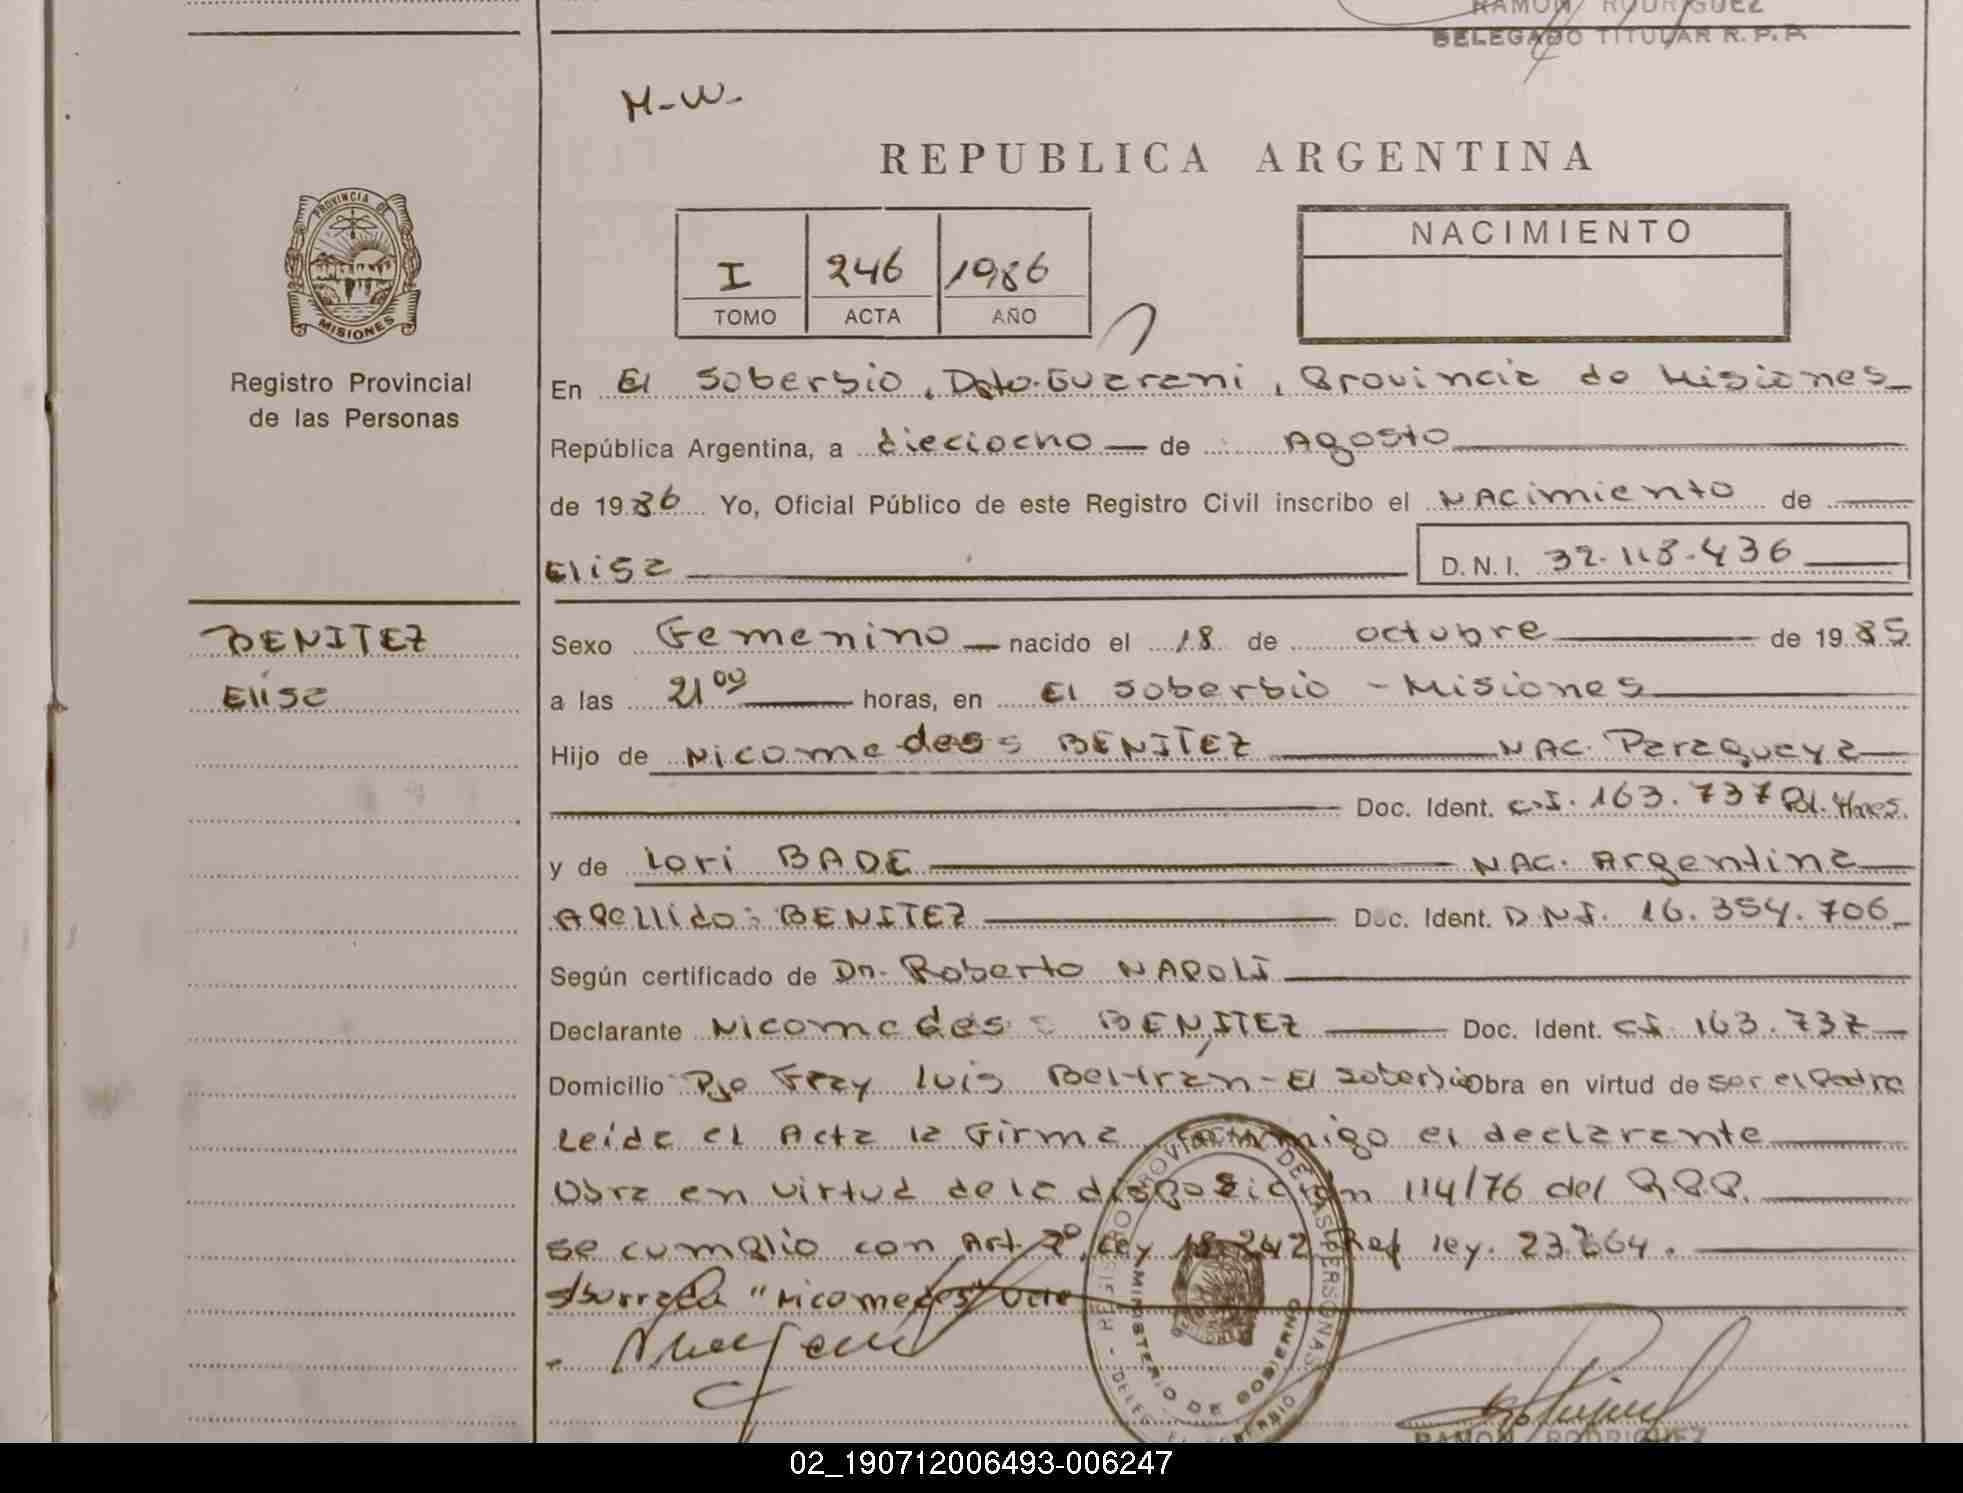 RAMON RODRIGUEZ
DELEGADO TITULAR R.P.P.
M-W-
REPUBLICA ARGENTINA
PROVINCIA DE
MISIONES
Registro Provincial
de las Personas
I 246 1986
TOMO ACTA AÑO
NACIMIENTO
En El Soberbio, Dpto. Guarani, Provincia de Misiones
República Argentina, a dieciocho de Agosto
de 1986 Yo, Oficial Público de este Registro Civil inscribo el NACimiento de
Elisa D. N. I. 32.118.436
BENITEZ
Elisa
Sexo Femenino nacido el 18 de octubre de 1985
a las 21 00 horas, en El Soberbio - Misiones
Hijo de Nicomedes BENITEZ NAC. Paraguaya
Doc. Ident. C.I. 163.737 Pol. Mnes.
y de Lori BADE NAC. Argentina
Apellido: BENITEZ Doc. Ident. D.N.I. 16.354.706
Según certificado de Dn. Roberto NAPOLI
Declarante Nicomedes BENITEZ Doc. Ident. C.I. 163.737
Domicilio Pje Fray Luis Beltrán - El Soberbio Obra en virtud de ser el Padre
Leida el Acta la Firma conmigo el declarante
Obra en virtud de la disposición 114/76 del R.P.P.
se cumplio con Art. 2º Ley 18.248 Ref ley. 23.264.
s/borrada "Nicomedes" Vale
REGISTRO PROVINCIAL DE LAS PERSONAS
MINISTERIO DE GOBIERNO
RAMON RODRIGUEZ
02_190712006493-006247